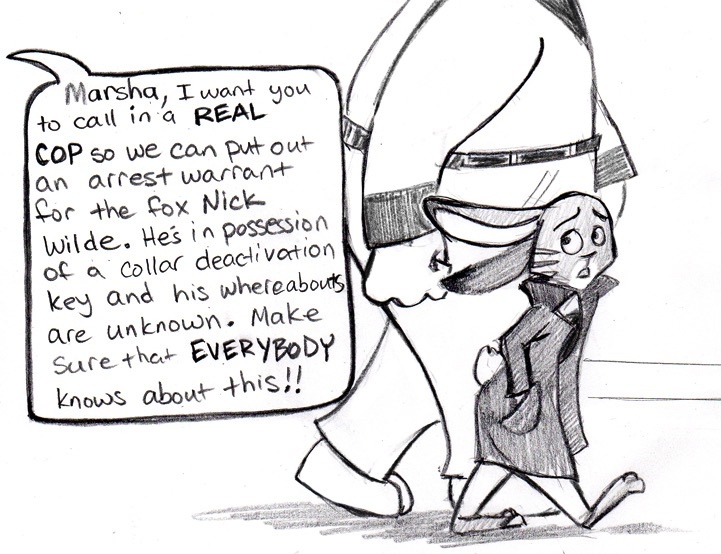 Marsha, I want you
to call in a REAL
COP so we can put out
an arrest warrant
for the fox Nick
Wilde. He's in possession
of a collar deactivation
key and his whereabouts
are unknown. Make
sure that EVERYBODY
knows about this!!